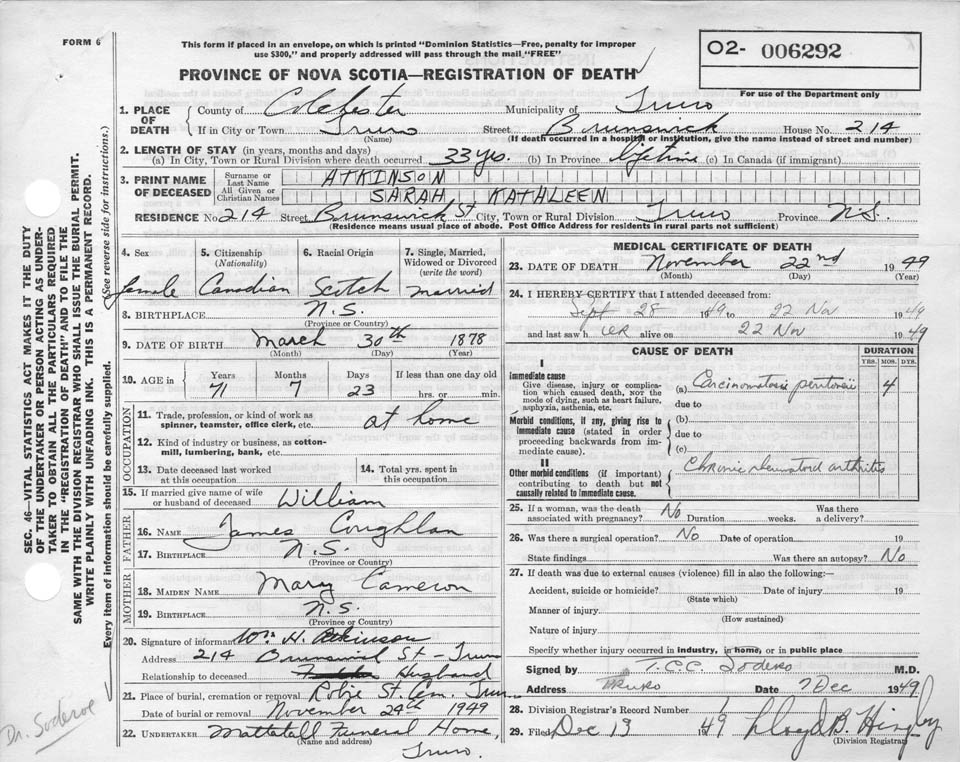 FORM 6
This form if placed in an envelope, on which is printed "Dominion Statistics—Free, penalty for improper
use $300," and properly addressed will pass through the mail "FREE"
O2- 006292
For use of the Department only
PROVINCE OF NOVA SCOTIA—REGISTRATION OF DEATH
1. PLACE OF DEATH County of Colchester Municipality of Truro
If in City or Town Truro Street Brunswick House No. 214
(Name) (If death occurred in a hospital or institution, give the name instead of street and number)
2. LENGTH OF STAY (in years, months and days)
(a) In City, Town or Rural Division where death occurred 33 yrs. (b) In Province lifetime (c) In Canada (if immigrant)
3. PRINT NAME OF DECEASED Surname or Last Name ATKINSON
All Given or Christian Names SARAH KATHLEEN
RESIDENCE No. 214 Street Brunswick St City, Town or Rural Division Truro Province N.S.
(Residence means usual place of abode. Post Office Address for residents in rural parts not sufficient)
4. Sex 5. Citizenship (Nationality) 6. Racial Origin 7. Single, Married, Widowed or Divorced (write the word)
female Canadian Scotch married
8. BIRTHPLACE N.S.
(Province or Country)
9. DATE OF BIRTH March 30th 1878
(Month) (Day) (Year)
10. AGE in Years Months Days If less than one day old
71 7 23 hrs. or min.
OCCUPATION
11. Trade, profession, or kind of work as spinner, teamster, office clerk, etc. at home
12. Kind of industry or business, as cotton-mill, lumbering, bank, etc.
13. Date deceased last worked at this occupation 14. Total yrs. spent in this occupation
15. If married give name of wife or husband of deceased William
FATHER
16. NAME James Coughlan
17. BIRTHPLACE N.S.
(Province or Country)
MOTHER
18. MAIDEN NAME Mary Cameron
19. BIRTHPLACE N.S.
(Province or Country)
20. Signature of informant Wm. H. Atkinson
Address 214 Brunswick St - Truro
Relationship to deceased Husband
21. Place of burial, cremation or removal Robie St. Cem. Truro
Date of burial or removal November 24th 1949
22. UNDERTAKER Mattatall Funeral Home,
(Name and address) Truro.
MEDICAL CERTIFICATE OF DEATH
23. DATE OF DEATH November 22nd 1949
(Month) (Day) (Year)
24. I HEREBY CERTIFY that I attended deceased from:
Sept 28 1949 to 22 Nov 1949
and last saw her alive on 22 Nov 1949
CAUSE OF DEATH DURATION
YRS. MOS. DYS.
I
Immediate cause
Give disease, injury or complication which caused death, NOT the mode of dying, such as heart failure, asphyxia, asthenia, etc.
(a) Carcinomatosis peritoneii 4
due to
Morbid conditions, if any, giving rise to immediate cause (stated in order proceeding backwards from immediate cause).
(b)
due to
(c)
II
Other morbid conditions (if important) contributing to death but not causally related to immediate cause.
Chronic rheumatoid arthritis
25. If a woman, was the death associated with pregnancy? No Duration weeks. Was there a delivery?
26. Was there a surgical operation? No Date of operation 19
State findings Was there an autopsy? No
27. If death was due to external causes (violence) fill in also the following:—
Accident, suicide or homicide? Date of injury 19
(State which)
Manner of injury
(How sustained)
Nature of injury
Specify whether injury occurred in industry, in home, or in public place
Signed by T.C.C. Sodero M.D.
Address TRURO Date 7 Dec 1949
28. Division Registrar's Record Number
29. Filed Dec 13 1949 Lloyd B. Hingley
(Division Registrar)
SEC. 46—VITAL STATISTICS ACT MAKES IT THE DUTY
OF THE UNDERTAKER OR PERSON ACTING AS UNDER-
TAKER TO OBTAIN ALL THE PARTICULARS REQUIRED
IN THE "REGISTRATION OF DEATH" AND TO FILE THE
SAME WITH THE DIVISION REGISTRAR WHO SHALL ISSUE THE BURIAL PERMIT.
WRITE PLAINLY WITH UNFADING INK. THIS IS A PERMANENT RECORD.
Every item of information should be carefully supplied. (See reverse side for instructions.)
Dr. Soderoe